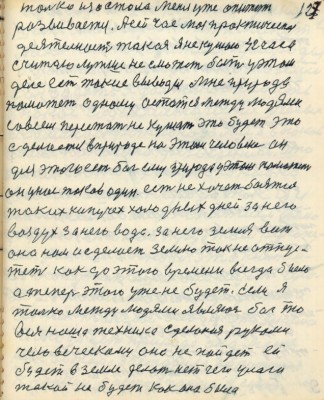 только из остола меня уже опитот 127
развивается. А сей час моя практическая
деятельность такая я не кушаю 4 часа
считаю лутше не сможет быть у этом
деле есть такие выводы мне природа
поможет одному остатся между людями
совсем перестать не кушать это будет это
сделается в природе на этом человеке он
для этого есть бог ему природа у этом поможет
он у нас таков один. если не хочет боятся
таких кипучих холодных дней за него
воздух за него вода. за него земля вот
она нам и сделает землю так не отпус-
тет как до этого времени всегда было
а теперь этого уже не будет. если я
только между людями являюсь бог то
вся наша техника сделаная руками
человеческими она не пойдет ей
будет в земле делать нет чего угля
такой не будет как она была